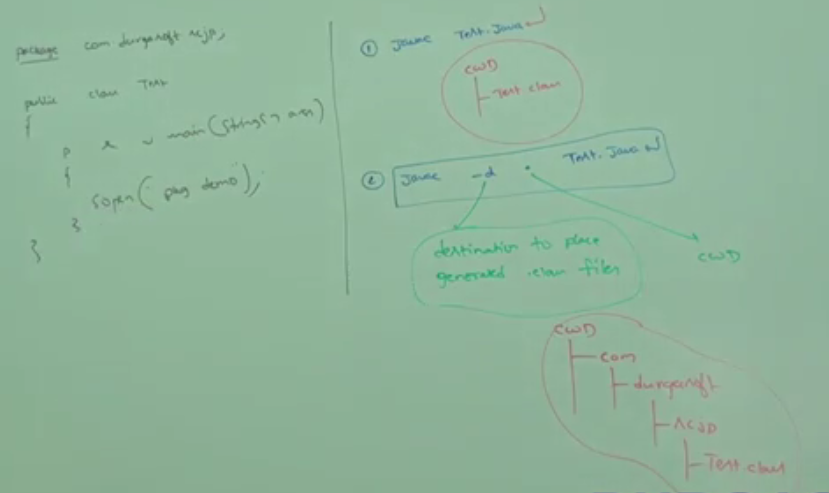 package com.durgasoft.scjp;
public class Test
{
p s v main(String[] args)
{
Sopln("pkg demo");
}
}
① javac Test.java ↵
CWD
Test.class
② javac -d . Test.java ↵
destination to place
generated .class files
CWD
CWD
com
durgasoft
scjp
Test.class